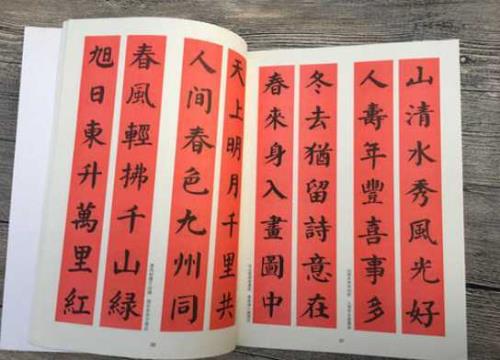 山清水秀風光好
人壽年豐喜事多
冬去猶留詩意在
春來身入畫圖中
天上明月千里共
人间春色九州同
春風輕拂千山緑
旭日東升萬里紅